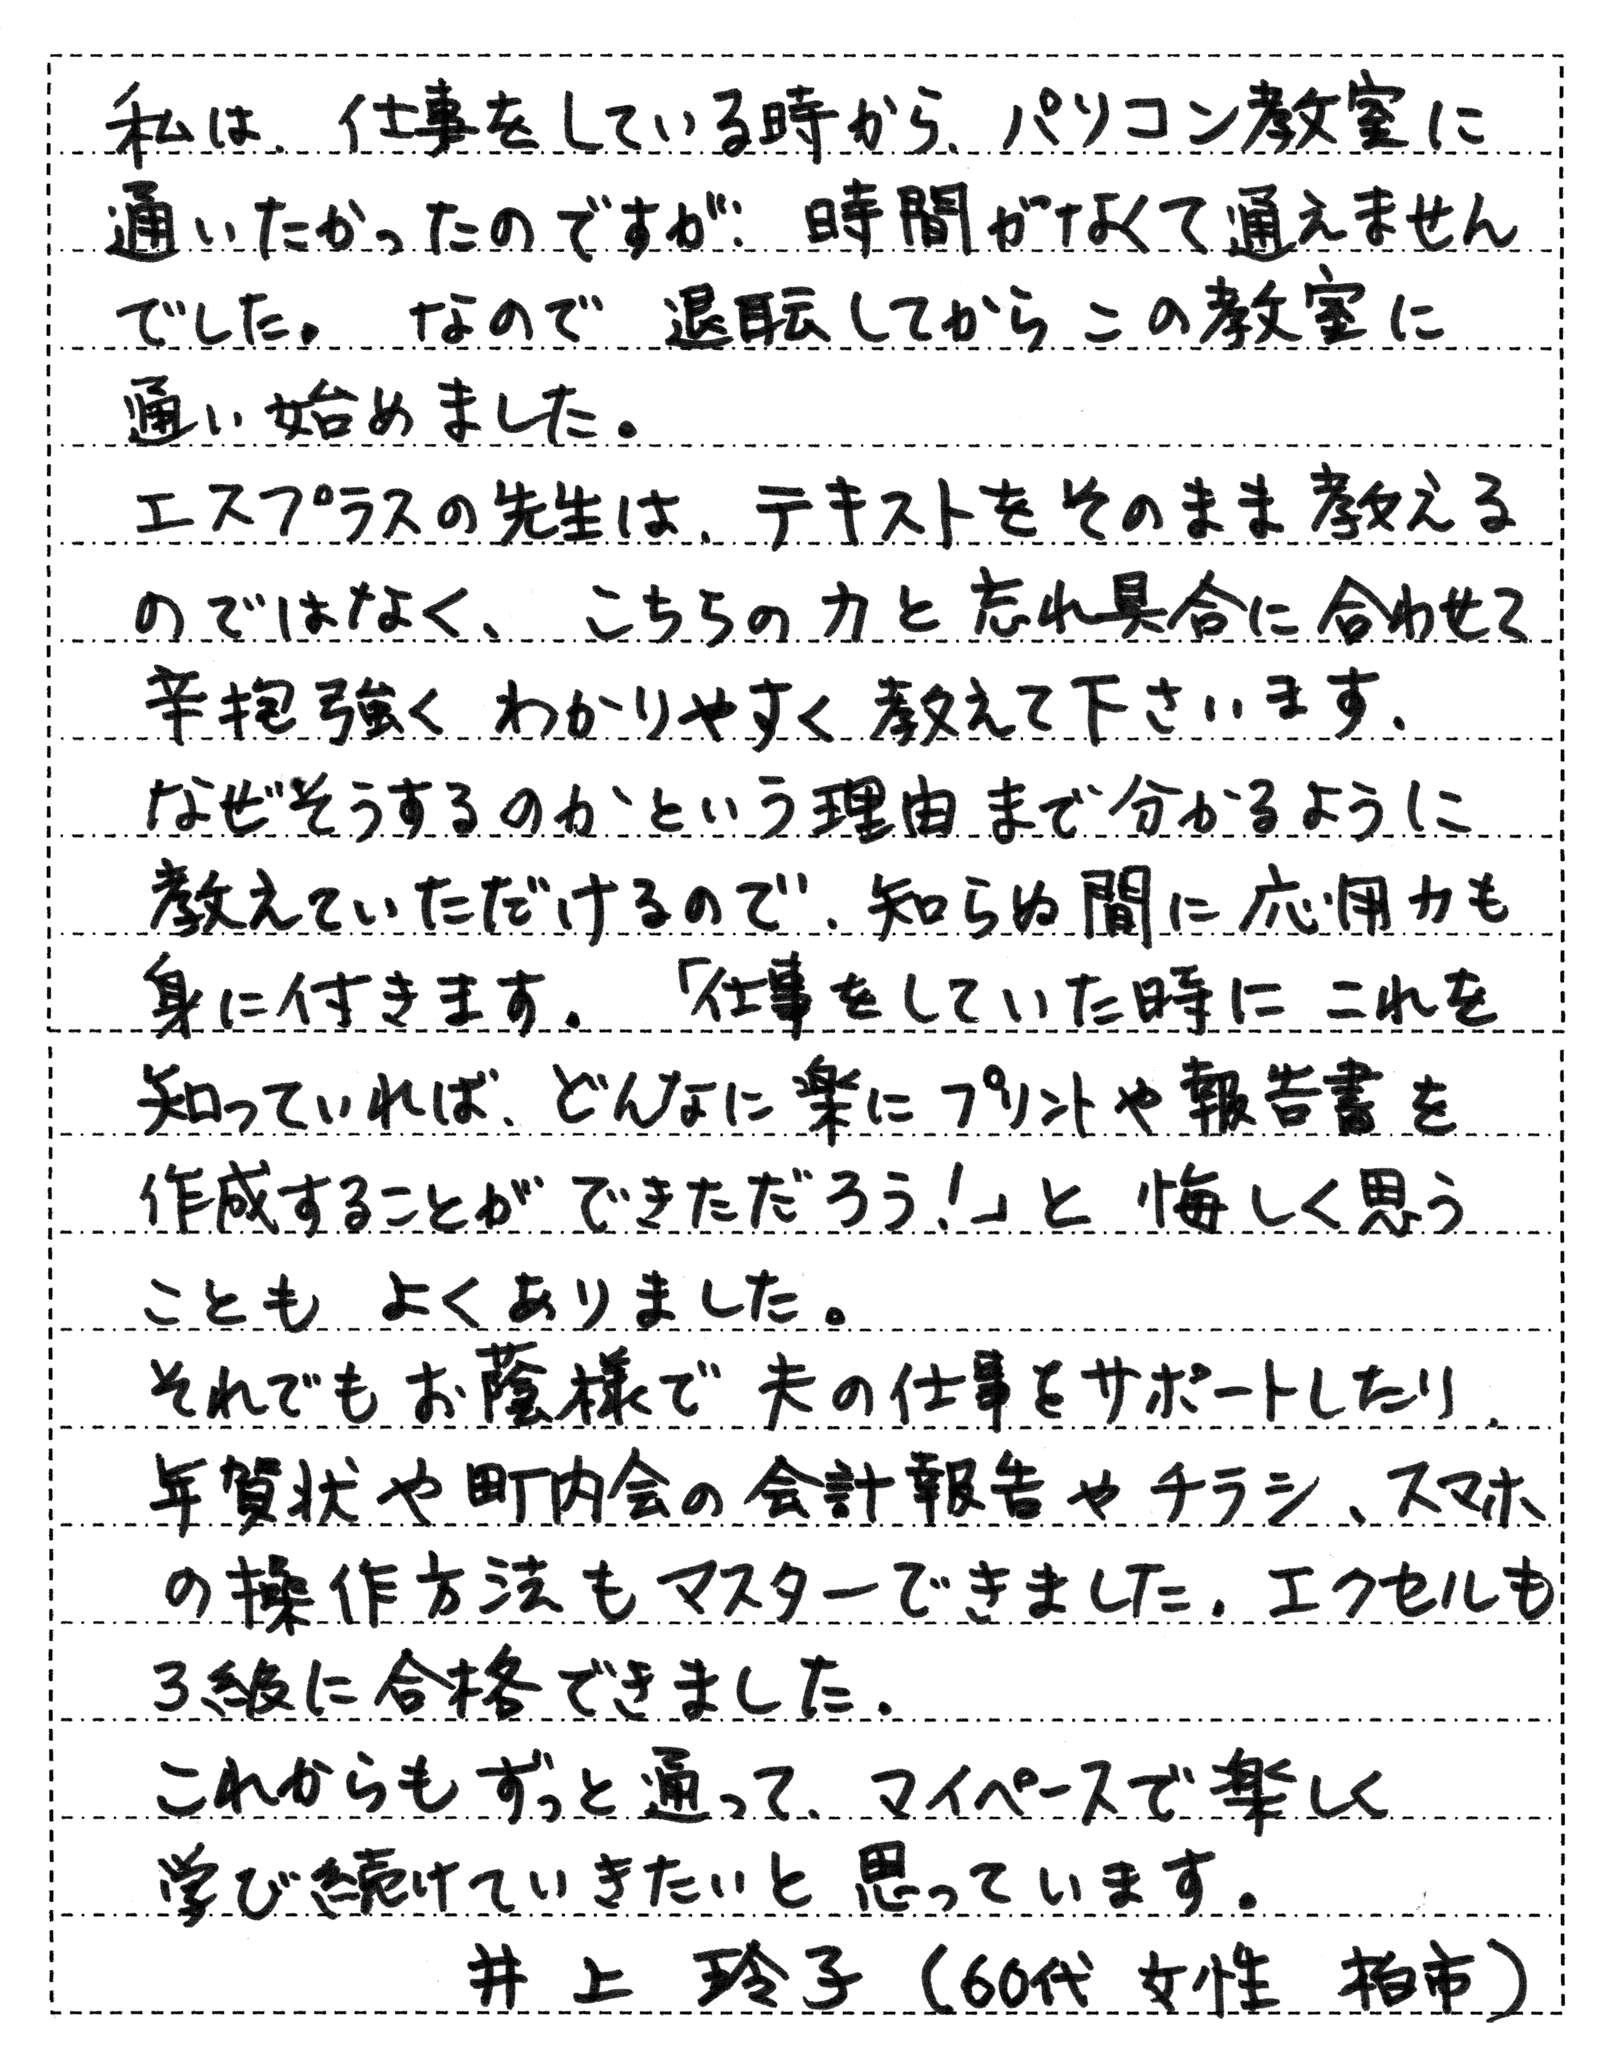 私は、仕事をしている時から、パソコン教室に
通いたかったのですが、時間がなくて通えません
でした。なので退転してからこの教室に
通い始めました。
エスプラスの先生は、テキストをそのまま教える
のではなく、こちらの力と忘れ具合に合わせて
辛抱強くわかりやすく教えて下さいます。
なぜそうするのかという理由まで分かるように
教えていただけるので、知らぬ間に応用力も
身に付きます。「仕事をしていた時にこれを
知っていれば、どんなに楽にプリントや報告書を
作成することができただろう!」と悔しく思う
こともよくありました。
それでもお蔭様で夫の仕事をサポートしたり、
年賀状や町内会の会計報告やチラシ、スマホ
の操作方法もマスターできました。エクセルも
3級に合格できました。
これからもずっと通って、マイペースで楽しく
学び続けていきたいと思っています。
井上 玲子(60代 女性 柏市)